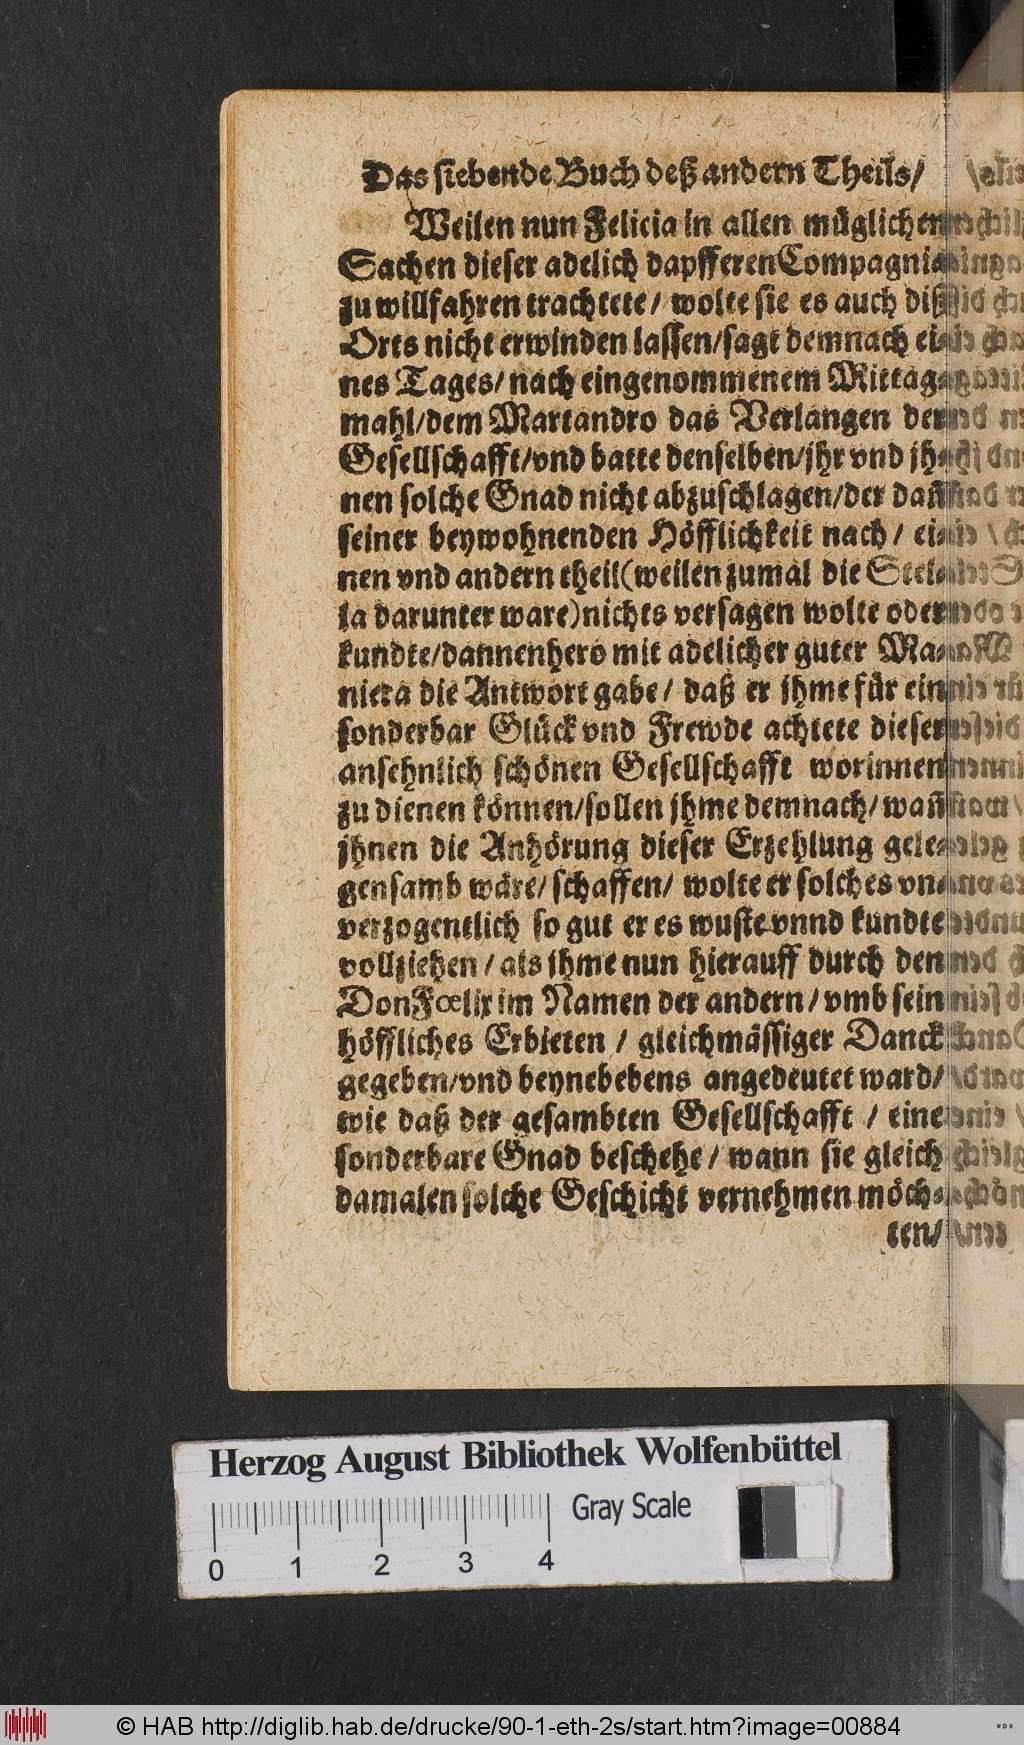 Das siebende Buch deß andern Theils/
Weilen nun Felicia in allen müglichen
Sachen dieser adelich dapfferen Compagnia
zu willfahren trachtete/ wolte sie es auch diß
Orts nicht erwinden lassen/sagt demnach ei-
nes Tages/ nach eingenommenem Mittag-
mahl/dem Martandro das Verlangen der
Gesellschafft/vnd batte denselben/jhr vnd jh-
nen solche Gnad nicht abzuschlagen/der dañ
seiner beywohnenden Höfflichkeit nach/ ei-
nen vnd andern theil(weilen zumal die Stel-
la darunter ware)nichts versagen wolte oder
kundte/dannenhero mit adelicher guter Ma-
niera die Antwort gabe/ daß er jhme für ein
sonderbar Glück vnd Frewde achtete dieser
ansehnlich schönen Gesellschafft worinnen
zu dienen können/sollen jhme demnach/wañ
jhnen die Anhörung dieser Erzehlung gele-
gensamb wäre/ schaffen/ wolte er solches vn-
verzogentlich so gut er es wuste vnnd kundte
vollziehen/ als jhme nun hierauff durch den
Don Fœlix im Namen der andern/ vmb sein
höffliches Erbieten / gleichmässiger Danck
gegeben/vnd beynebebens angedeutet ward/
wie daß der gesambten Gesellschafft / eine
sonderbare Gnad beschehe/ wann sie gleich
damalen solche Geschicht vernehmen möch-
ten/
Herzog August Bibliothek Wolfenbüttel
Gray Scale
0 1 2 3 4
© HAB http://diglib.hab.de/drucke/90-1-eth-2s/start.htm?image=00884